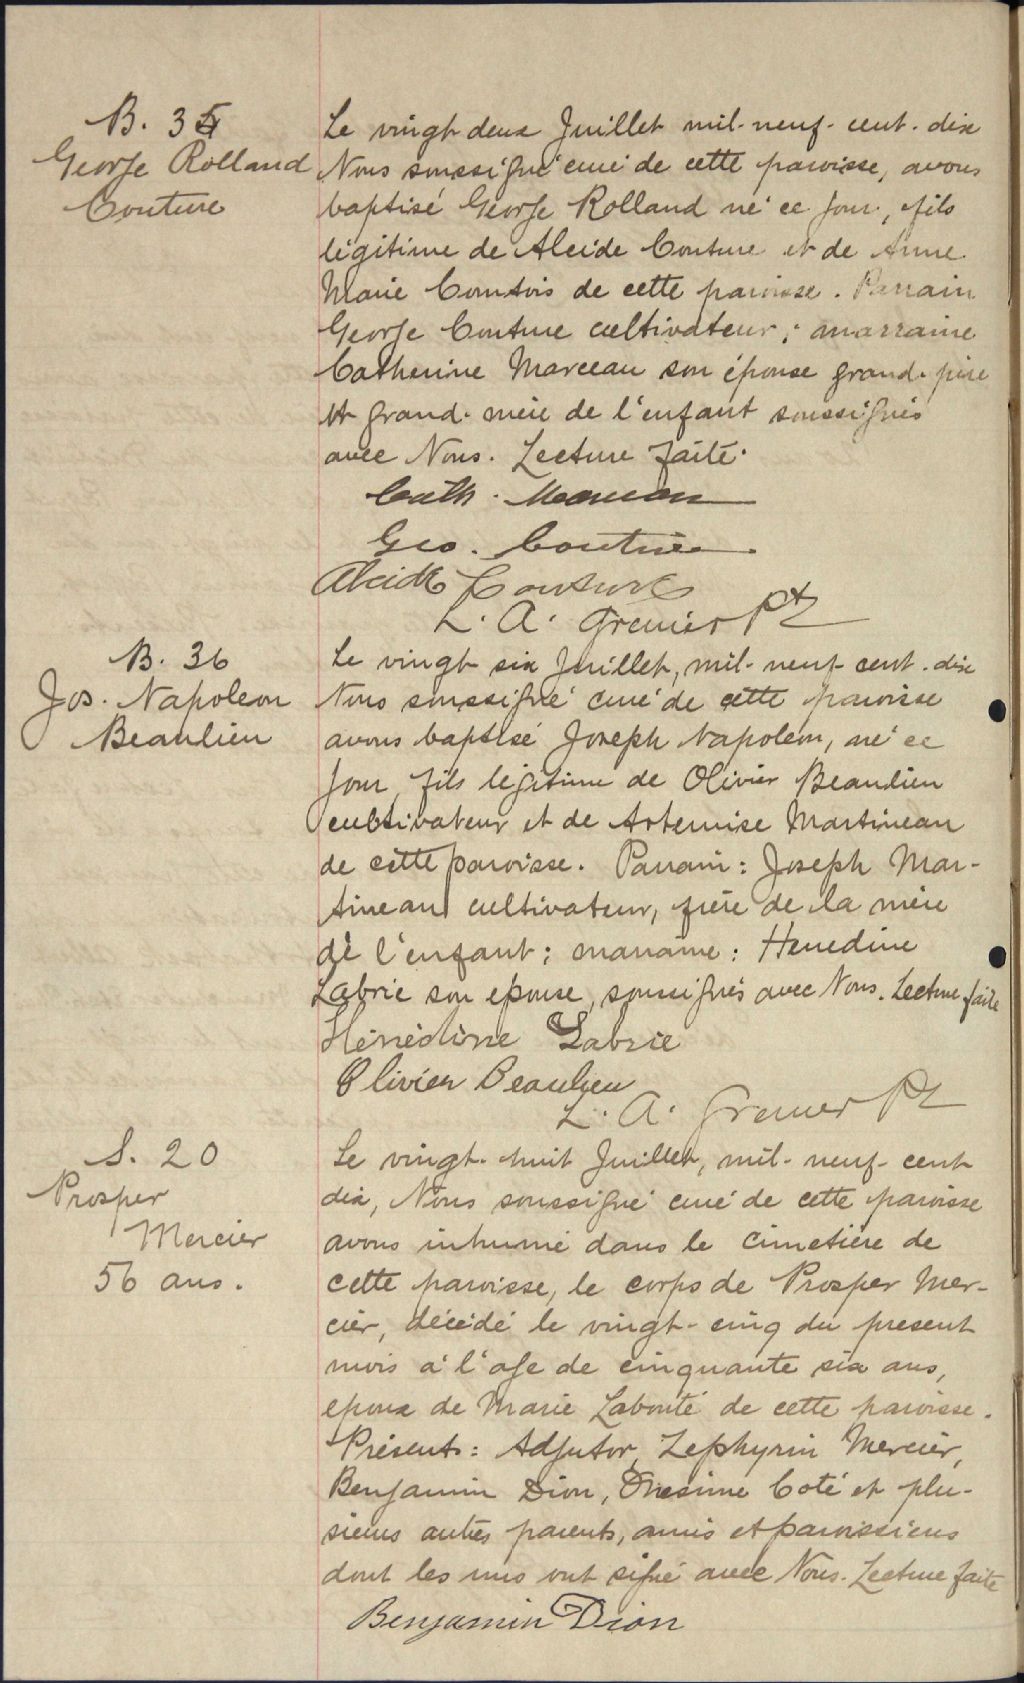 B. 35
George Rolland
Couture
Le vingt deux Juillet mil-neuf-cent-dix
Nous soussigné curé de cette paroisse, avons
baptisé George Rolland né ce jour, fils
légitime de Alcide Couture et de Anne
Marie Comtois de cette paroisse. Parrain
George Couture cultivateur; marraine
Catherine Marceau son épouse grand-père
et grand-mère de l'enfant soussignés
avec Nous. Lecture faite.
Cath. Marceau
Geo. Couture
Alcide Couture
L. A. Grenier Pt
B. 36
Jos. Napoleon
Beaulieu
Le vingt six Juillet, mil-neuf-cent-dix
Nous soussigné curé de cette paroisse
avons baptisé Joseph Napoléon, né ce
jour, fils légitime de Olivier Beaulieu
cultivateur et de Artemise Martineau
de cette paroisse. Parrain: Joseph Mar-
tineau cultivateur, frère de la mère
de l'enfant; marraine: Henedine
Labrie son epouse, soussignés avec Nous. Lecture faite
Hénédine Labrie
Olivier Beaulieu
L. A. Grenier Pt
S. 20
Prosper
Mercier
56 ans.
Le vingt-huit Juillet, mil-neuf-cent
dix, Nous soussigné curé de cette paroisse
avons inhumé dans le cimetière de
cette paroisse, le corps de Prosper Mer-
cier, décédé le vingt-cinq du present
mois à l'age de cinquante six ans,
epoux de Marie Labonté de cette paroisse.
Présents: Adjutor, Zephyrin Mercier,
Benjamin Dion, Onesime Coté et plu-
sieurs autres parents, amis et paroissiens
dont les uns ont signé avec Nous. Lecture faite
Benjamin Dion